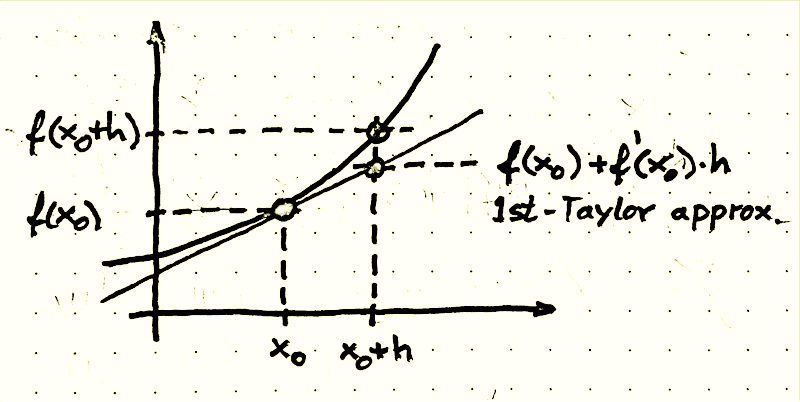 f(x₀+h)
f(x₀)+f'(x₀)·h
f(x₀)
1st-Taylor approx.
x₀
x₀+h